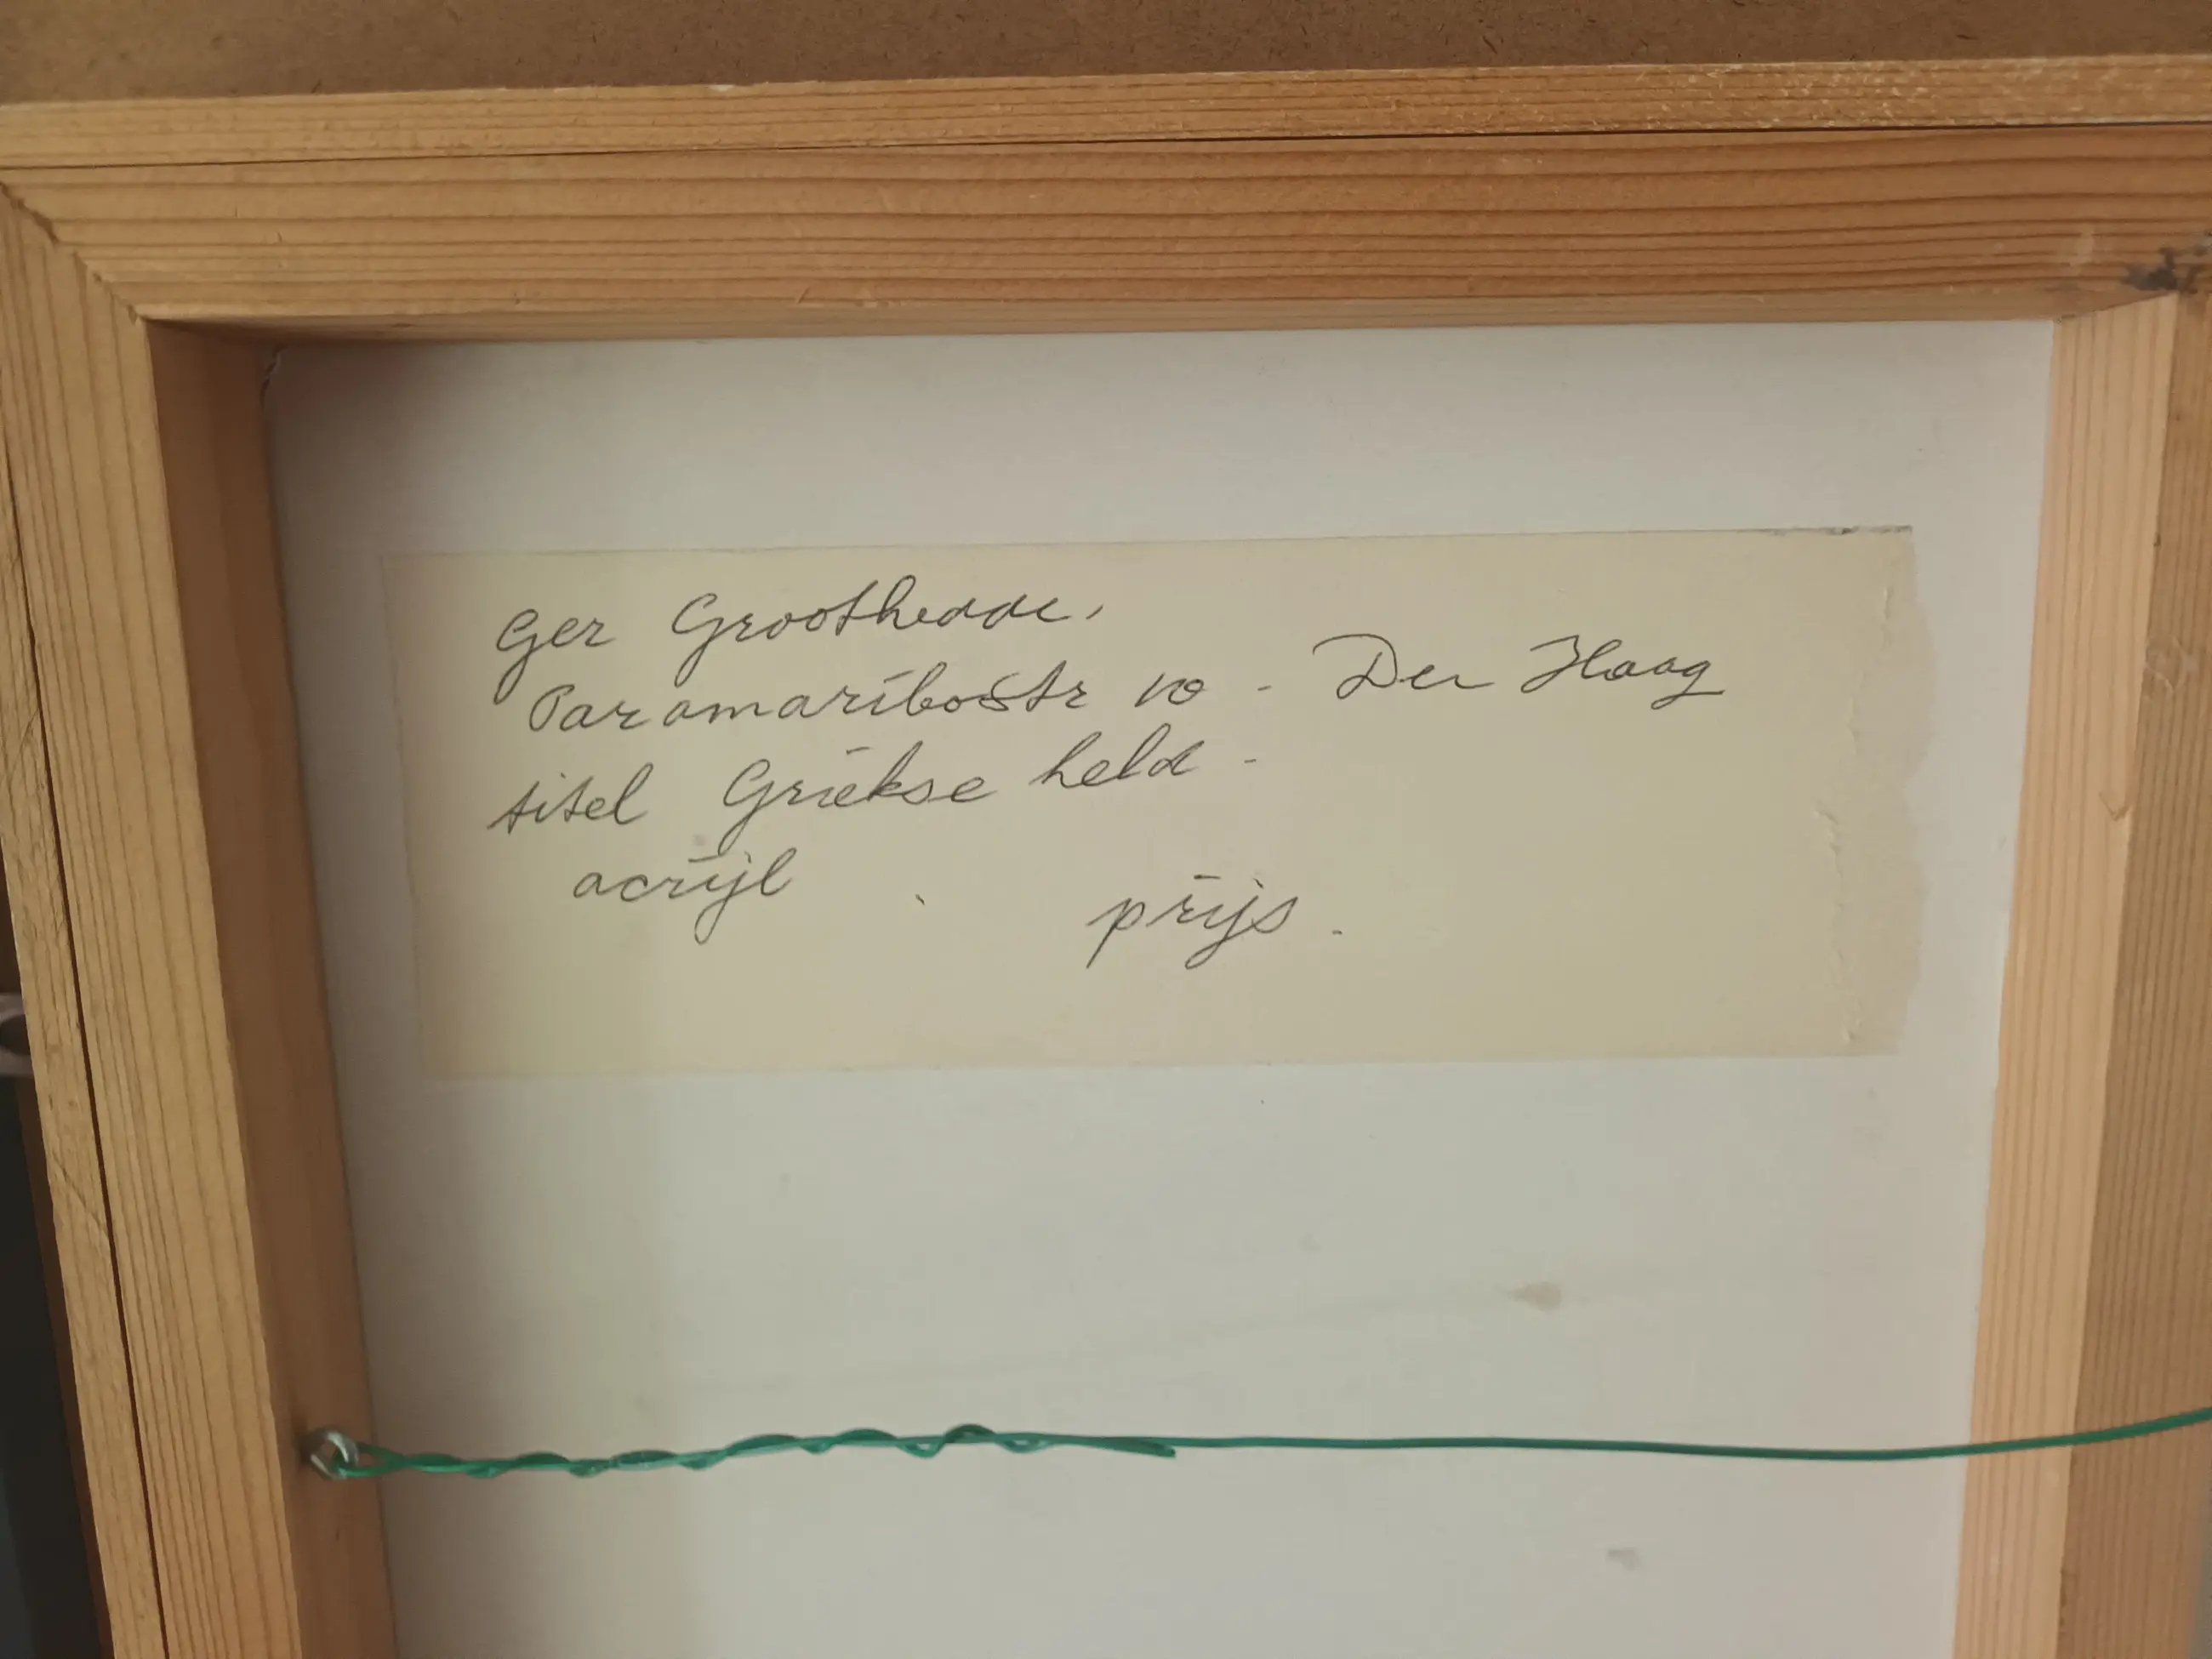 Ger Groothedde,
Paramaribostr 10 - Den Haag
titel Griekse held -
acrijl . prijs .